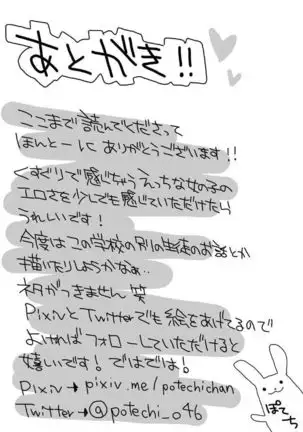 あとがき!!
ここまで読んでくださって
ほんとーにありがとうございます!!
くすぐりで感じちゃうえっちな女の子の
エロさを少しでも感じていただけたら
うれしいです!
今度はこの学校の別の生徒のお話とか
描いたりしようかなぁ..
ネタがつきません 笑
PixivとTwitterでも絵をあげてるので
よければフォローしていただけると
嬉しいです! ではでは!
Pixiv→pixiv.me/potechichan
Twitter→@potechi_o46
ぽてち